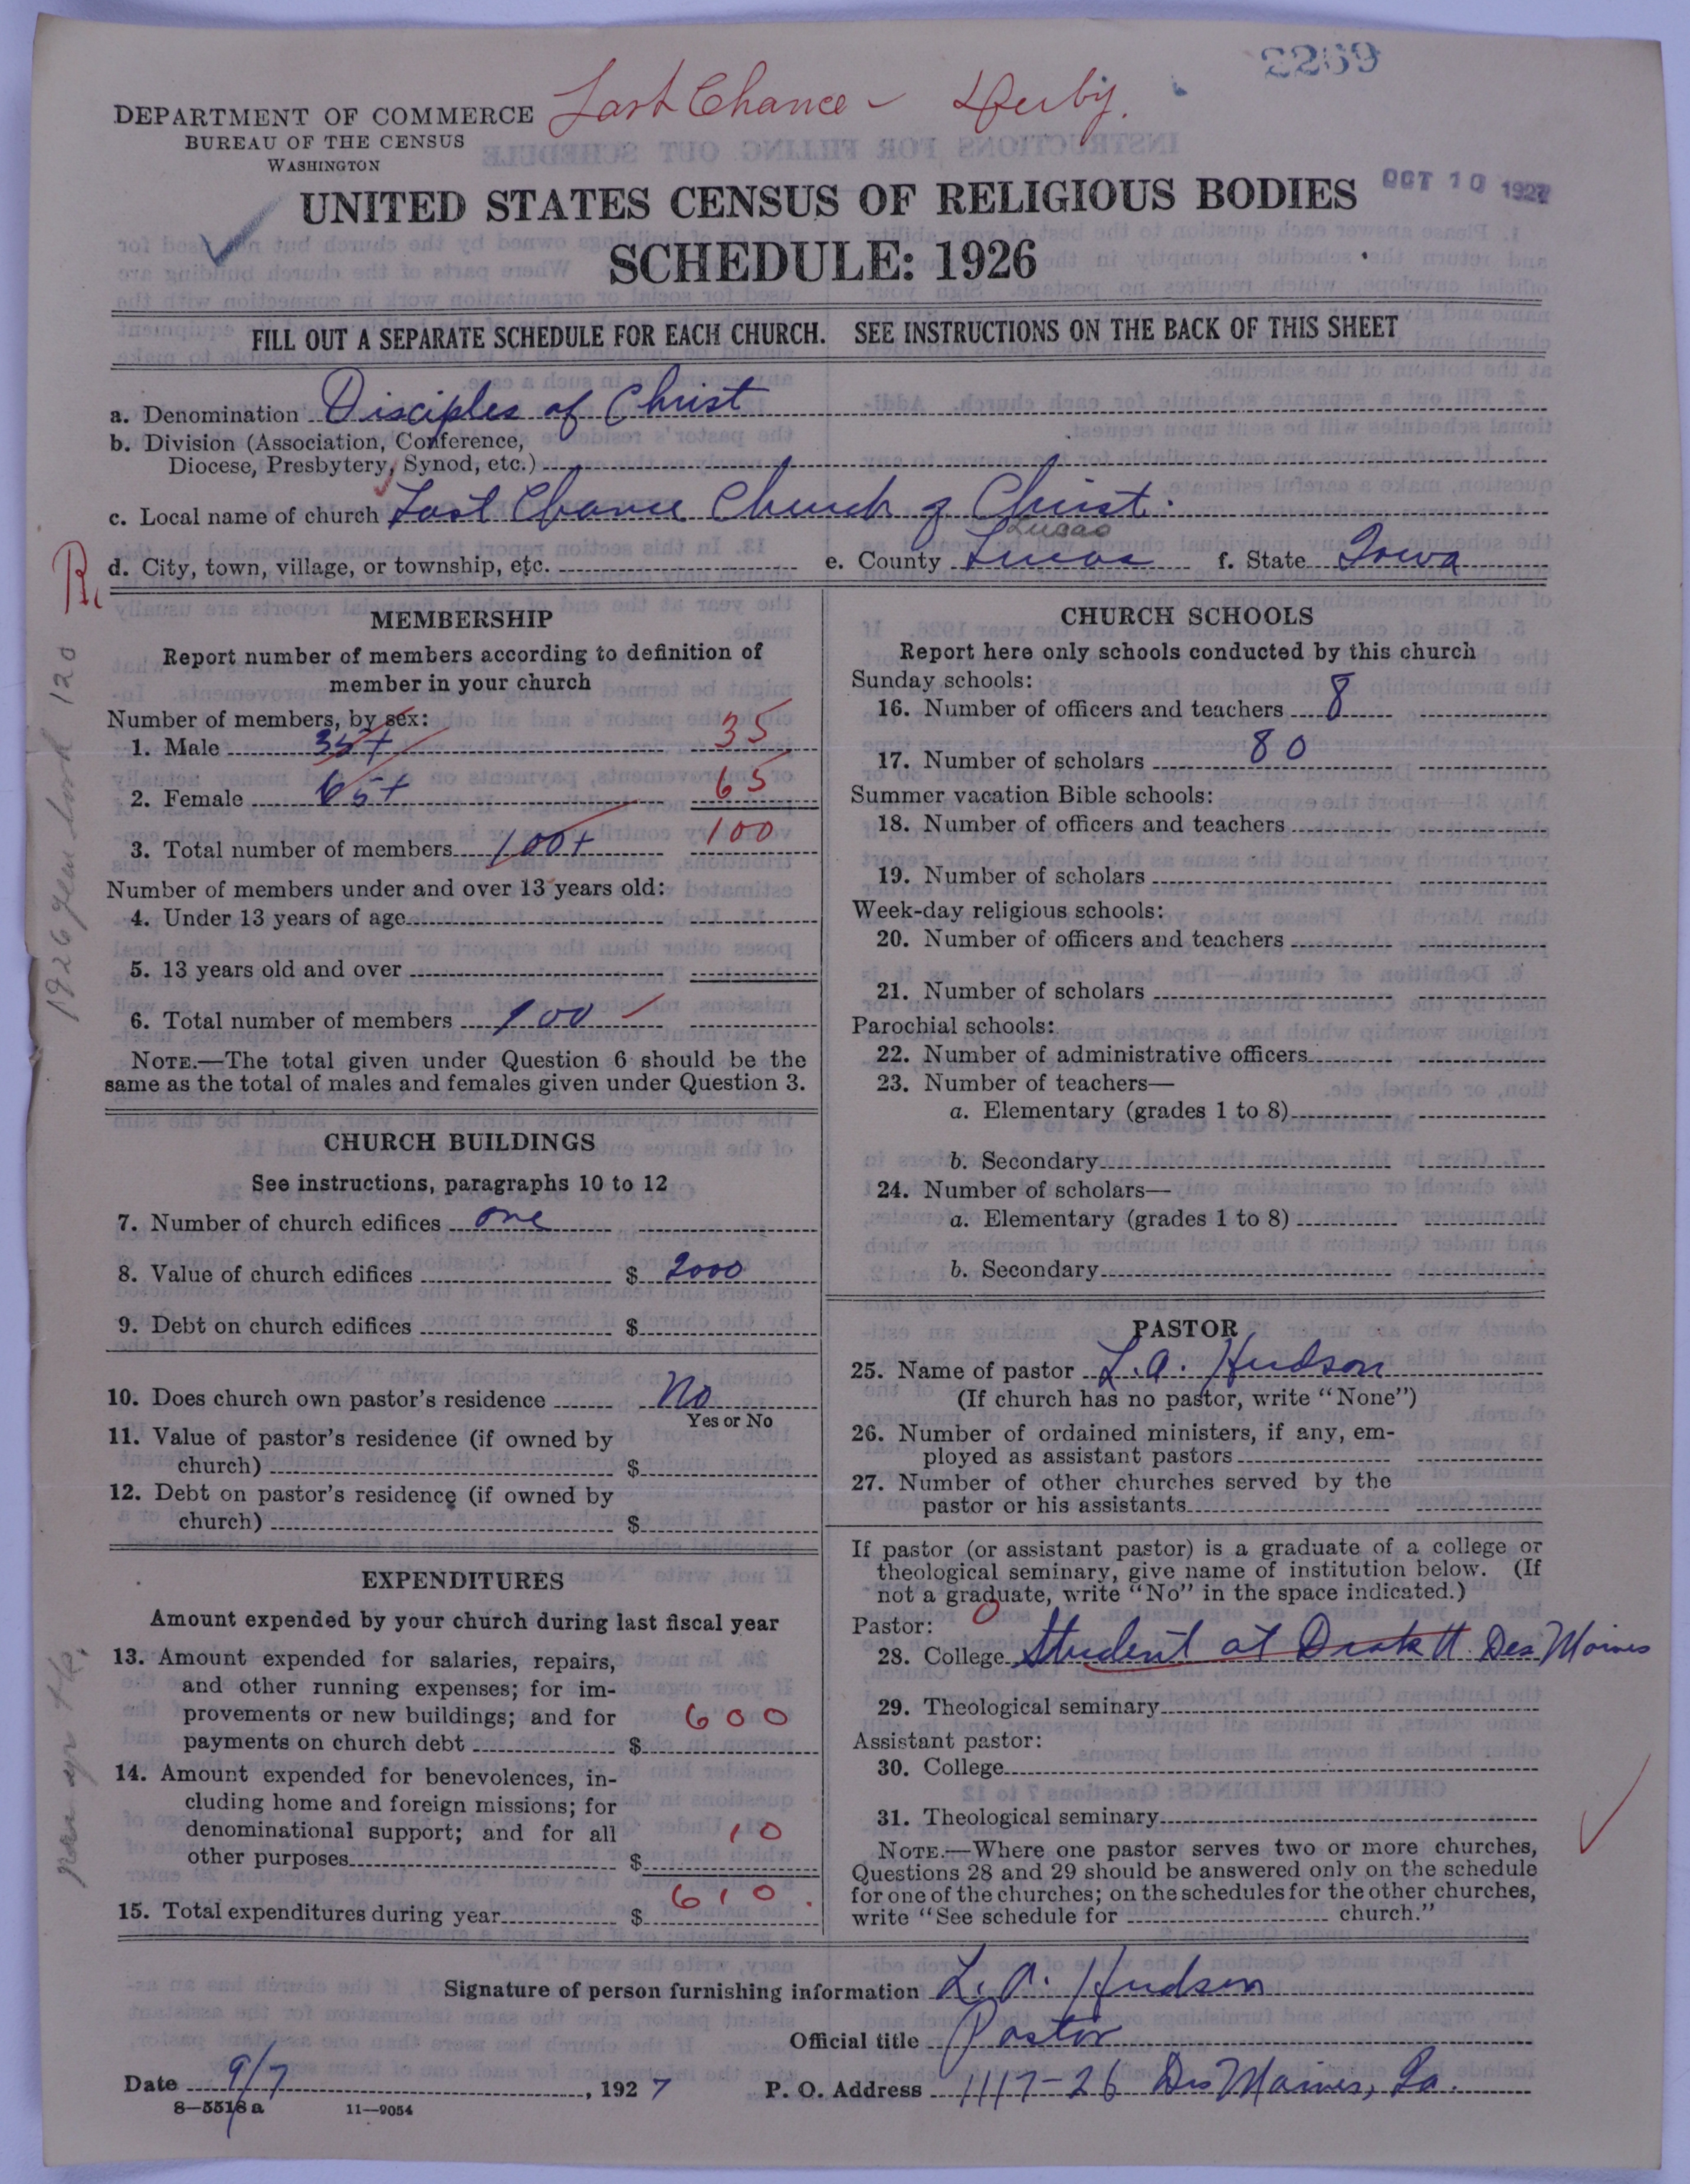 2269
Last Chance - Derby.
DEPARTMENT OF COMMERCE
BUREAU OF THE CENSUS
WASHINGTON
OCT 10 1927
UNITED STATES CENSUS OF RELIGIOUS BODIES
SCHEDULE: 1926
FILL OUT A SEPARATE SCHEDULE FOR EACH CHURCH. SEE INSTRUCTIONS ON THE BACK OF THIS SHEET
a. Denomination Disciples of Christ
b. Division (Association, Conference,
Diocese, Presbytery, Synod, etc.)
c. Local name of church Last Chance Church of Christ.
Lucas
d. City, town, village, or township, etc. e. County Lucas f. State Iowa
R.
1926 year book 120
MEMBERSHIP
Report number of members according to definition of
member in your church
Number of members, by sex:
1. Male 35+ 35
2. Female 65+ 65
3. Total number of members 100+ 100
Number of members under and over 13 years old:
4. Under 13 years of age
5. 13 years old and over
6. Total number of members 100
NOTE.—The total given under Question 6 should be the
same as the total of males and females given under Question 3.
CHURCH BUILDINGS
See instructions, paragraphs 10 to 12
7. Number of church edifices one
8. Value of church edifices $ 2000
9. Debt on church edifices $
10. Does church own pastor's residence No
Yes or No
11. Value of pastor's residence (if owned by
church) $
12. Debt on pastor's residence (if owned by
church) $
EXPENDITURES
Amount expended by your church during last fiscal year
13. Amount expended for salaries, repairs,
and other running expenses; for im-
provements or new buildings; and for
payments on church debt $ 600
14. Amount expended for benevolences, in-
cluding home and foreign missions; for
denominational support; and for all
other purposes $ 10
15. Total expenditures during year $ 610.
CHURCH SCHOOLS
Report here only schools conducted by this church
Sunday schools:
16. Number of officers and teachers 8
17. Number of scholars 80
Summer vacation Bible schools:
18. Number of officers and teachers
19. Number of scholars
Week-day religious schools:
20. Number of officers and teachers
21. Number of scholars
Parochial schools:
22. Number of administrative officers
23. Number of teachers—
a. Elementary (grades 1 to 8)
b. Secondary
24. Number of scholars—
a. Elementary (grades 1 to 8)
b. Secondary
PASTOR
25. Name of pastor L.A. Hudson
(If church has no pastor, write "None")
26. Number of ordained ministers, if any, em-
ployed as assistant pastors
27. Number of other churches served by the
pastor or his assistants
If pastor (or assistant pastor) is a graduate of a college or
theological seminary, give name of institution below. (If
not a graduate, write "No" in the space indicated.)
Pastor: 0
28. College Student at Drake U Des Moines
29. Theological seminary
Assistant pastor:
30. College
31. Theological seminary
NOTE.—Where one pastor serves two or more churches,
Questions 28 and 29 should be answered only on the schedule
for one of the churches; on the schedules for the other churches,
write "See schedule for church."
Signature of person furnishing information L.A. Hudson
Official title Pastor
Date 9/7, 1927 P. O. Address 1117-26 Des Moines, Ia.
8—5518 a 11—9054